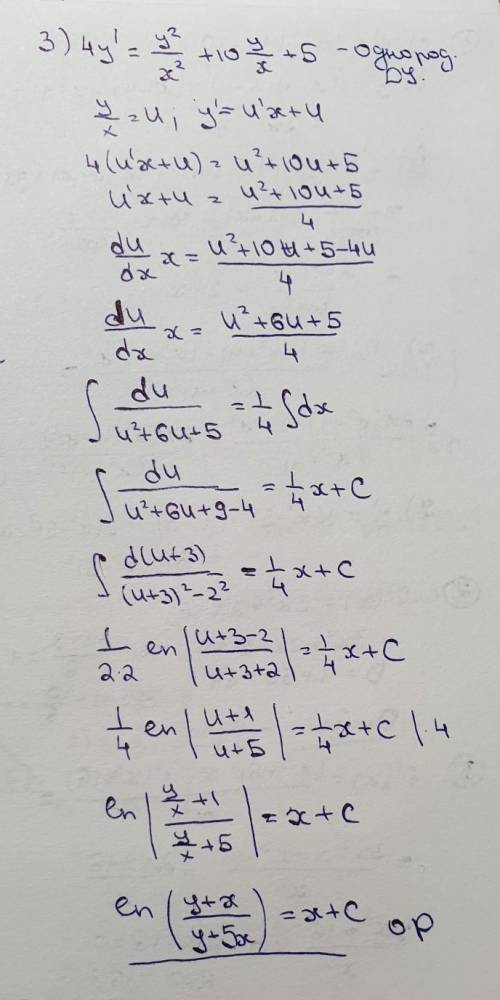 3) 4y' = y²/x² + 10 y/x + 5 - однород. ДУ.
y/x = u, y' = u'x + u
4(u'x + u) = u² + 10u + 5
u'x + u = (u² + 10u + 5)/4
du/dx x = (u² + 10u + 5 - 4u)/4
du/dx x = (u² + 6u + 5)/4
∫ du/(u² + 6u + 5) = 1/4 ∫ dx
∫ du/(u² + 6u + 9 - 4) = 1/4 x + C
∫ d(u+3)/((u+3)² - 2²) = 1/4 x + C
1/(2·2) ln |(u+3-2)/(u+3+2)| = 1/4 x + C
1/4 ln |(u+1)/(u+5)| = 1/4 x + C | · 4
ln |(y/x + 1)/(y/x + 5)| = x + C
ln ((y+x)/(y+5x)) = x + C ор